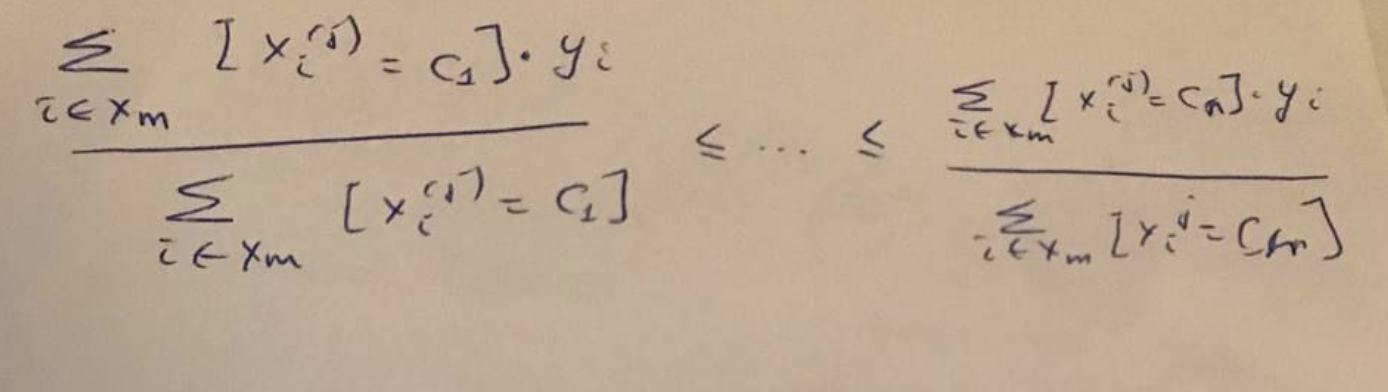 \frac{\sum_{i \in X_m} [x_i^{(j)} = c_1] \cdot y_i}{\sum_{i \in X_m} [x_i^{(j)} = c_1]} \le \dots \le \frac{\sum_{i \in X_m} [x_i^{(j)} = c_n] \cdot y_i}{\sum_{i \in X_m} [x_i^{j} = c_n]}